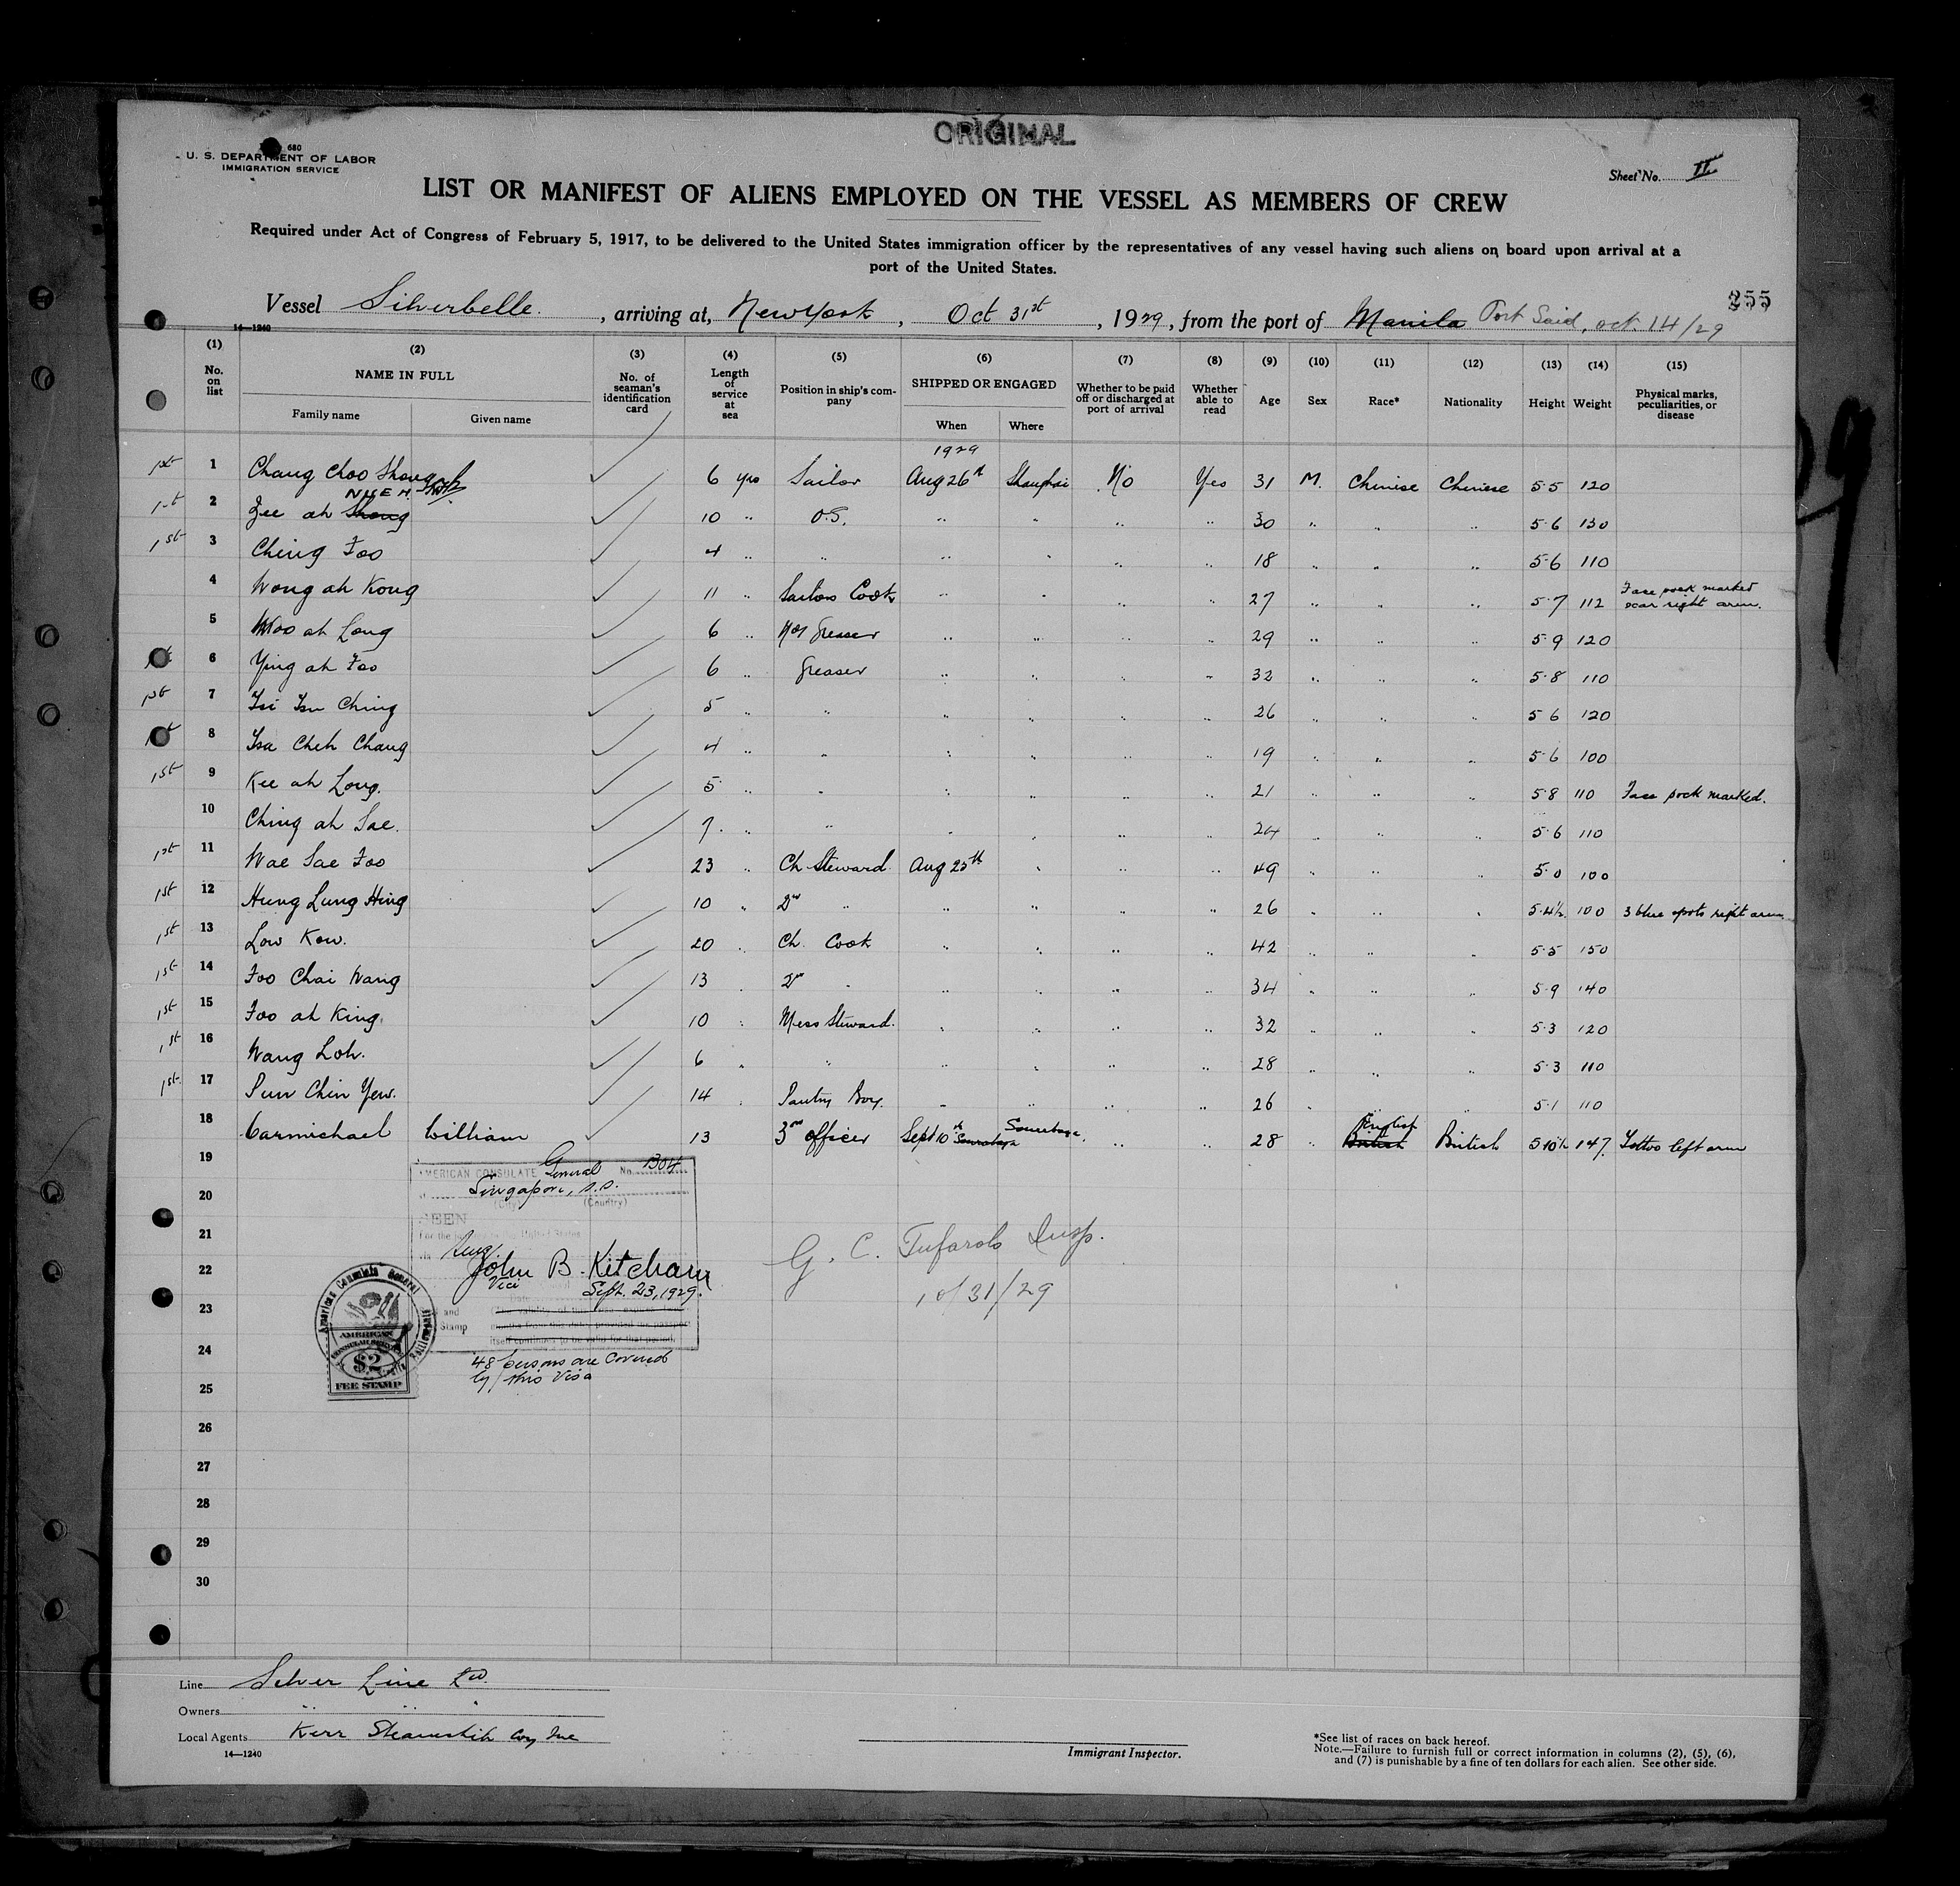 ORIGINAL
680
U. S. DEPARTMENT OF LABOR
IMMIGRATION SERVICE
Sheet No. II
LIST OR MANIFEST OF ALIENS EMPLOYED ON THE VESSEL AS MEMBERS OF CREW
Required under Act of Congress of February 5, 1917, to be delivered to the United States immigration officer by the representatives of any vessel having such aliens on board upon arrival at a
port of the United States.
255
Vessel Silverbelle, arriving at, New York, Oct 31st, 1929, from the port of Manila Port Said, oct. 14/29
14—1240
(1) (2) (3) (4) (5) (6) (7) (8) (9) (10) (11) (12) (13) (14) (15)
No. on list NAME IN FULL Family name Given name No. of seaman's identification card Length of service at sea Position in ship's company SHIPPED OR ENGAGED When Where Whether to be paid off or discharged at port of arrival Whether able to read Age Sex Race* Nationality Height Weight Physical marks, peculiarities, or disease
1929
1st 1 Chang Choo Shong 6 yrs Sailor Aug 26th Shanghai No Yes 31 M. Chinese Chinese 5.5 120
NUEH
1st 2 Zee ah Shong 10 " O.S. " " " " 30 " " " 5.6 130
1st 3 Ching Foo 4 " " " " " " 18 " " " 5.6 110
4 Wong ah Kong 11 " Sailors Cook " " " " 27 " " " 5.7 112 Face pock marked scar right arm.
5 Woo ah Long 6 " No1 Greaser " " " " 29 " " " 5.9 120
6 Ying ah Foo 6 " Greaser " " " " 32 " " " 5.8 110
1st 7 Tsi Tsu Ching 5 " " " " " " 26 " " " 5 6 120
8 Tsa Cheh Chang 4 " " " " " " 19 " " " 5.6 100
1st 9 Kee ah Long. 5 " " " " " " 21 " " " 5.8 110 Face pock marked.
10 Ching ah Sae. 7 " " " " " " 24 " " " 5.6 110
1st 11 Wae Sae Foo 23 " Ch Steward Aug 25th " " " 49 " " " 5.0 100
1st 12 Hung Lung Hing 10 " 2nd " " " " " 26 " " " 5.4½ 100 3 blue spots right arm
1st 13 Low Kow. 20 " Ch. Cook " " " " 42 " " " 5.5 150
1st 14 Foo Chai Wang 13 " 2nd " " " " " 34 " " " 5.9 140
1st 15 Foo ah King. 10 " Mess Steward. " " " " 32 " " " 5.3 120
1st 16 Wang Loh. 6 " " " " " " 28 " " " 5.3 110
1st 17 Sun Chin Yew. 14 " Pantry Boy. " " " " 26 " " " 5.1 110
18 Carmichael William 13 3rd officer Sept 10th Sourabaya Sourabaya. " " 28 " British English British 5 10½ 147. Tattoo left arm
19
20
21
22
23
24
25
26
27
28
29
30
AMERICAN CONSULATE General No. 1304
Singapore, S.S.
(City) (Country)
SEEN
For the journey to the United States
John B. Ketcham
Vice
Sept. 23, 1929.
and
Stamp
months from this date, provided the passport
itself continues to be valid for that period.
AMERICAN
CONSULAR SERVICE
$2
FEE STAMP
48 persons are covered
by this visa
G. C. Tufarolo Insp.
10/31/29
Line Silver Line Ltd.
Owners " "
Local Agents Kerr Steamship Coy Inc
14—1240
Immigrant Inspector.
*See list of races on back hereof.
Note.—Failure to furnish full or correct information in columns (2), (5), (6),
and (7) is punishable by a fine of ten dollars for each alien. See other side.